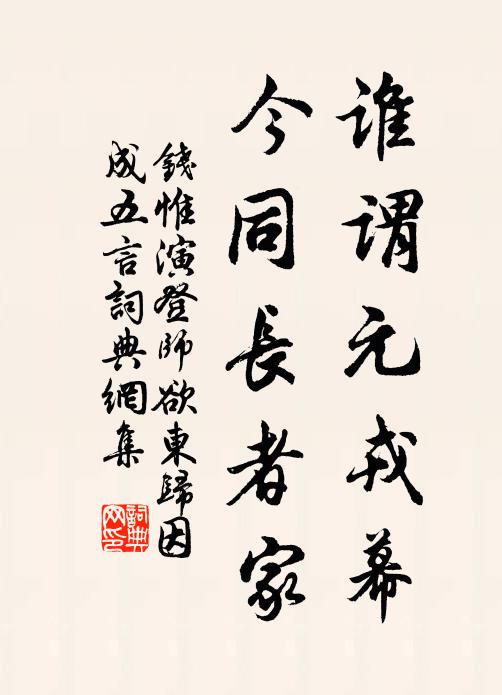 谁謂元戎幕
今同長者家
錢惟演登師欲東歸因
成五言詞典網集
詞典
网印